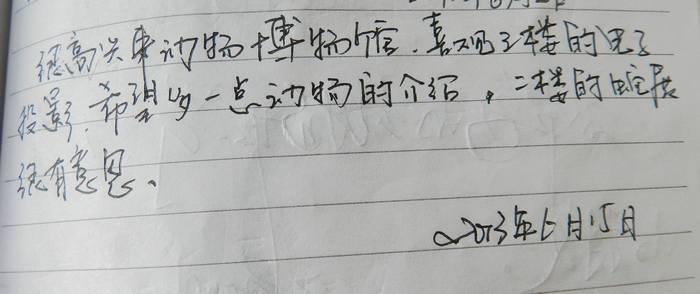 很高兴来动物博物馆.喜观3楼的电子
投影.希望多一点动物的介绍，二楼的蛇展
很有意思、
2023年6月15日